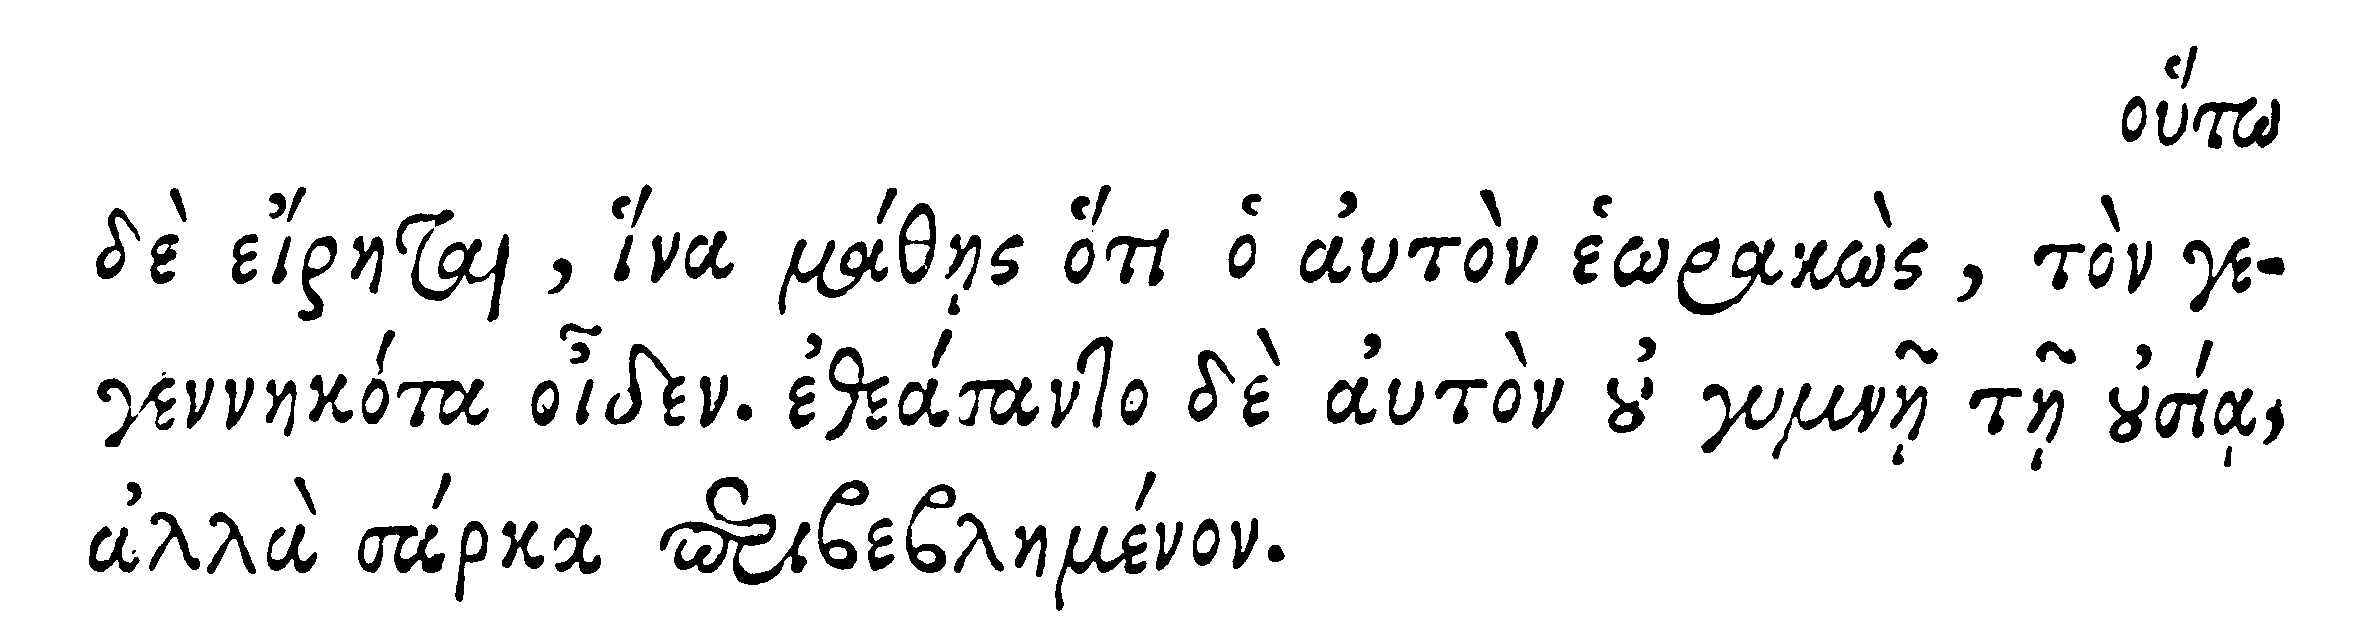 οὕτω
δὲ εἴρηται, ἵνα μάθῃς ὅτι ὁ αὐτὸν ἑωρακὼς, τὸν γε-
γεννηκότα οἶδεν. ἐθεάσαντο δὲ αὐτὸν οὐ γυμνῇ τῇ οὐσίᾳ,
ἀλλὰ σάρκα περιβεβλημένον.